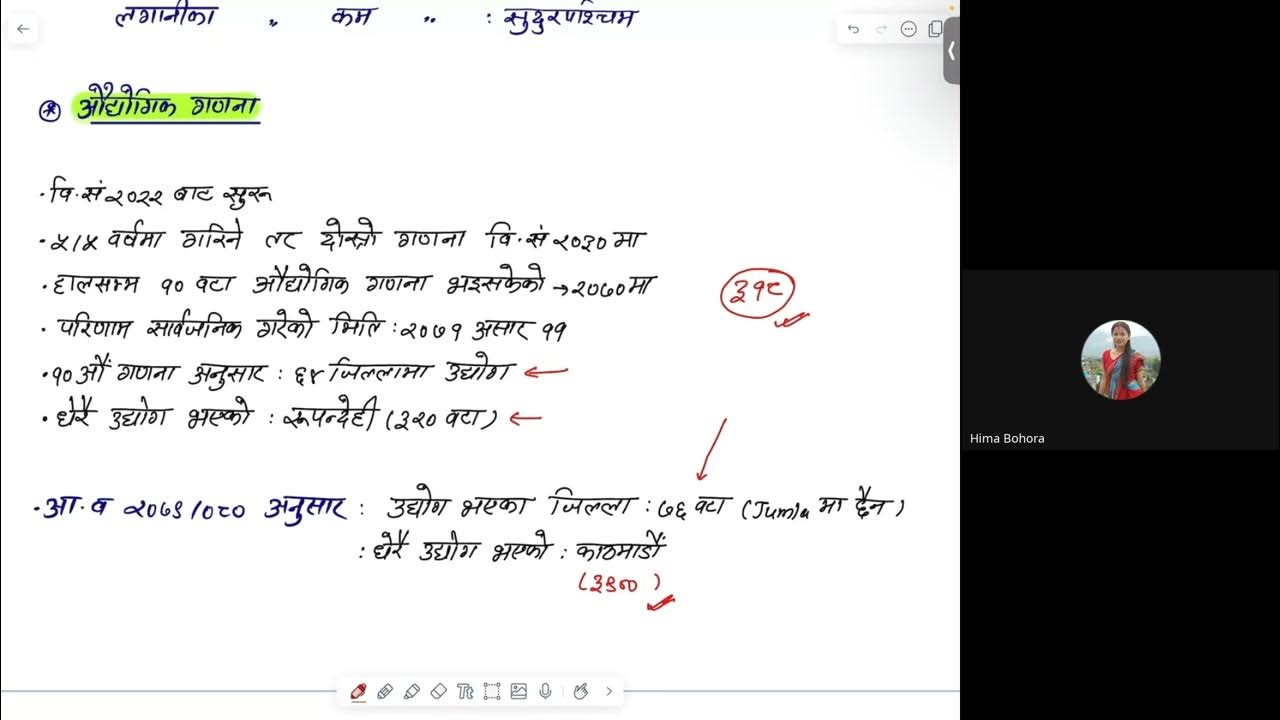 लगानीका " कम " : सुदुरपश्चिम
* औद्योगिक गणना
· वि.सं २०२२ बाट सुरु
· ५/५ वर्षमा गरिने तर दोस्रो गणना वि.सं २०३० मा
· हालसम्म १० वटा औद्योगिक गणना भइसकेको → २०७० मा
३१८
· परिणाम सार्वजनिक गरेको मिति : २०७१ असार ११
· १० औं गणना अनुसार : ६४ जिल्लामा उद्योग ←
· धेरै उद्योग भएको : रूपन्देही (३२० वटा) ←
· आ.व २०७९/०८० अनुसार : उद्योग भएका जिल्ला : ७६ वटा (Jumla मा छैन)
: धेरै उद्योग भएको : काठमाडौं
(३९००)
Hima Bohora
Tt